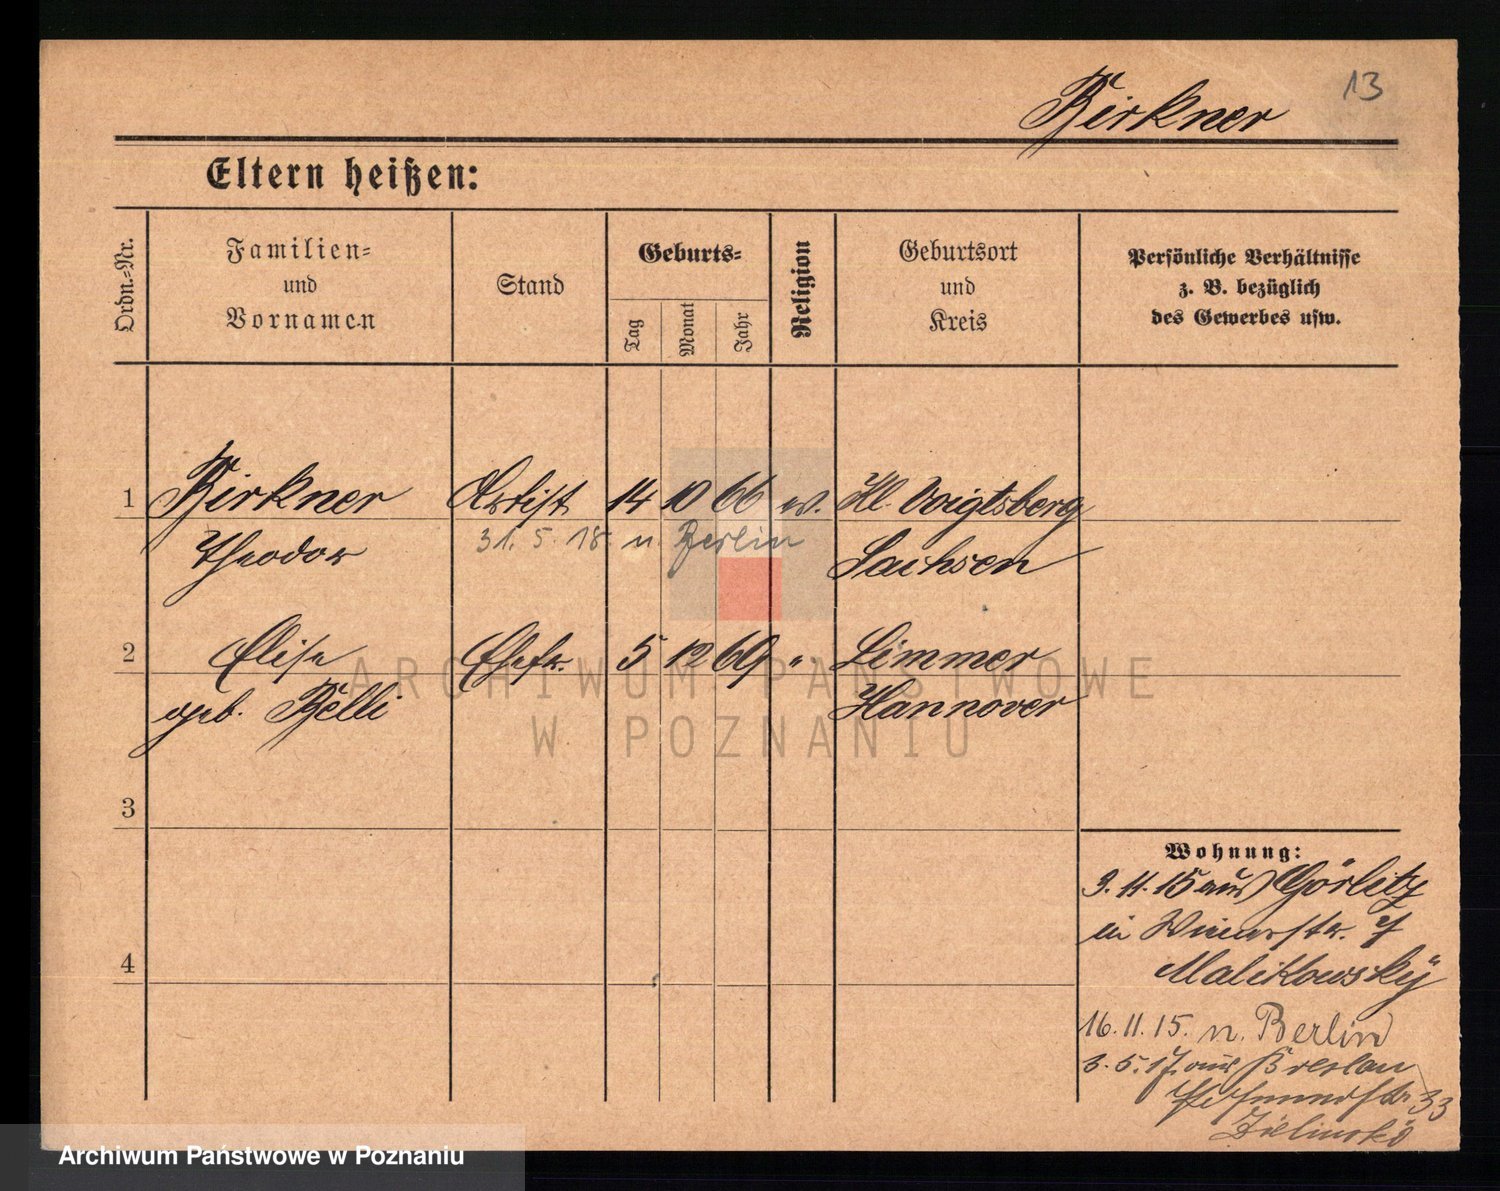 13
Birkner
Eltern heißen:
Ordn.-Nr.
Familien-
und
Vornamen
Stand
Geburts-
Tag
Monat
Jahr
Religion
Geburtsort
und
Kreis
Persönliche Verhältnisse
z. B. bezüglich
des Gewerbes usw.
1 Birkner Artist 14 10 66 ev. Kl. Voigtsberg
Theodor 31. 5. 18. n. Berlin Sachsen
2 Elise Ehefr. 5 12 69 " Limmer
geb. Belli Hannover
3
4
Wohnung:
3. 11. 15 aus Görlitz
in
Malikowsky
16. 11. 15. n. Berlin
3. 5. 17. aus Breslau
33
Zielinski
ARCHIWUM PAŃSTWOWE
W POZNANIU
Archiwum Państwowe w Poznaniu